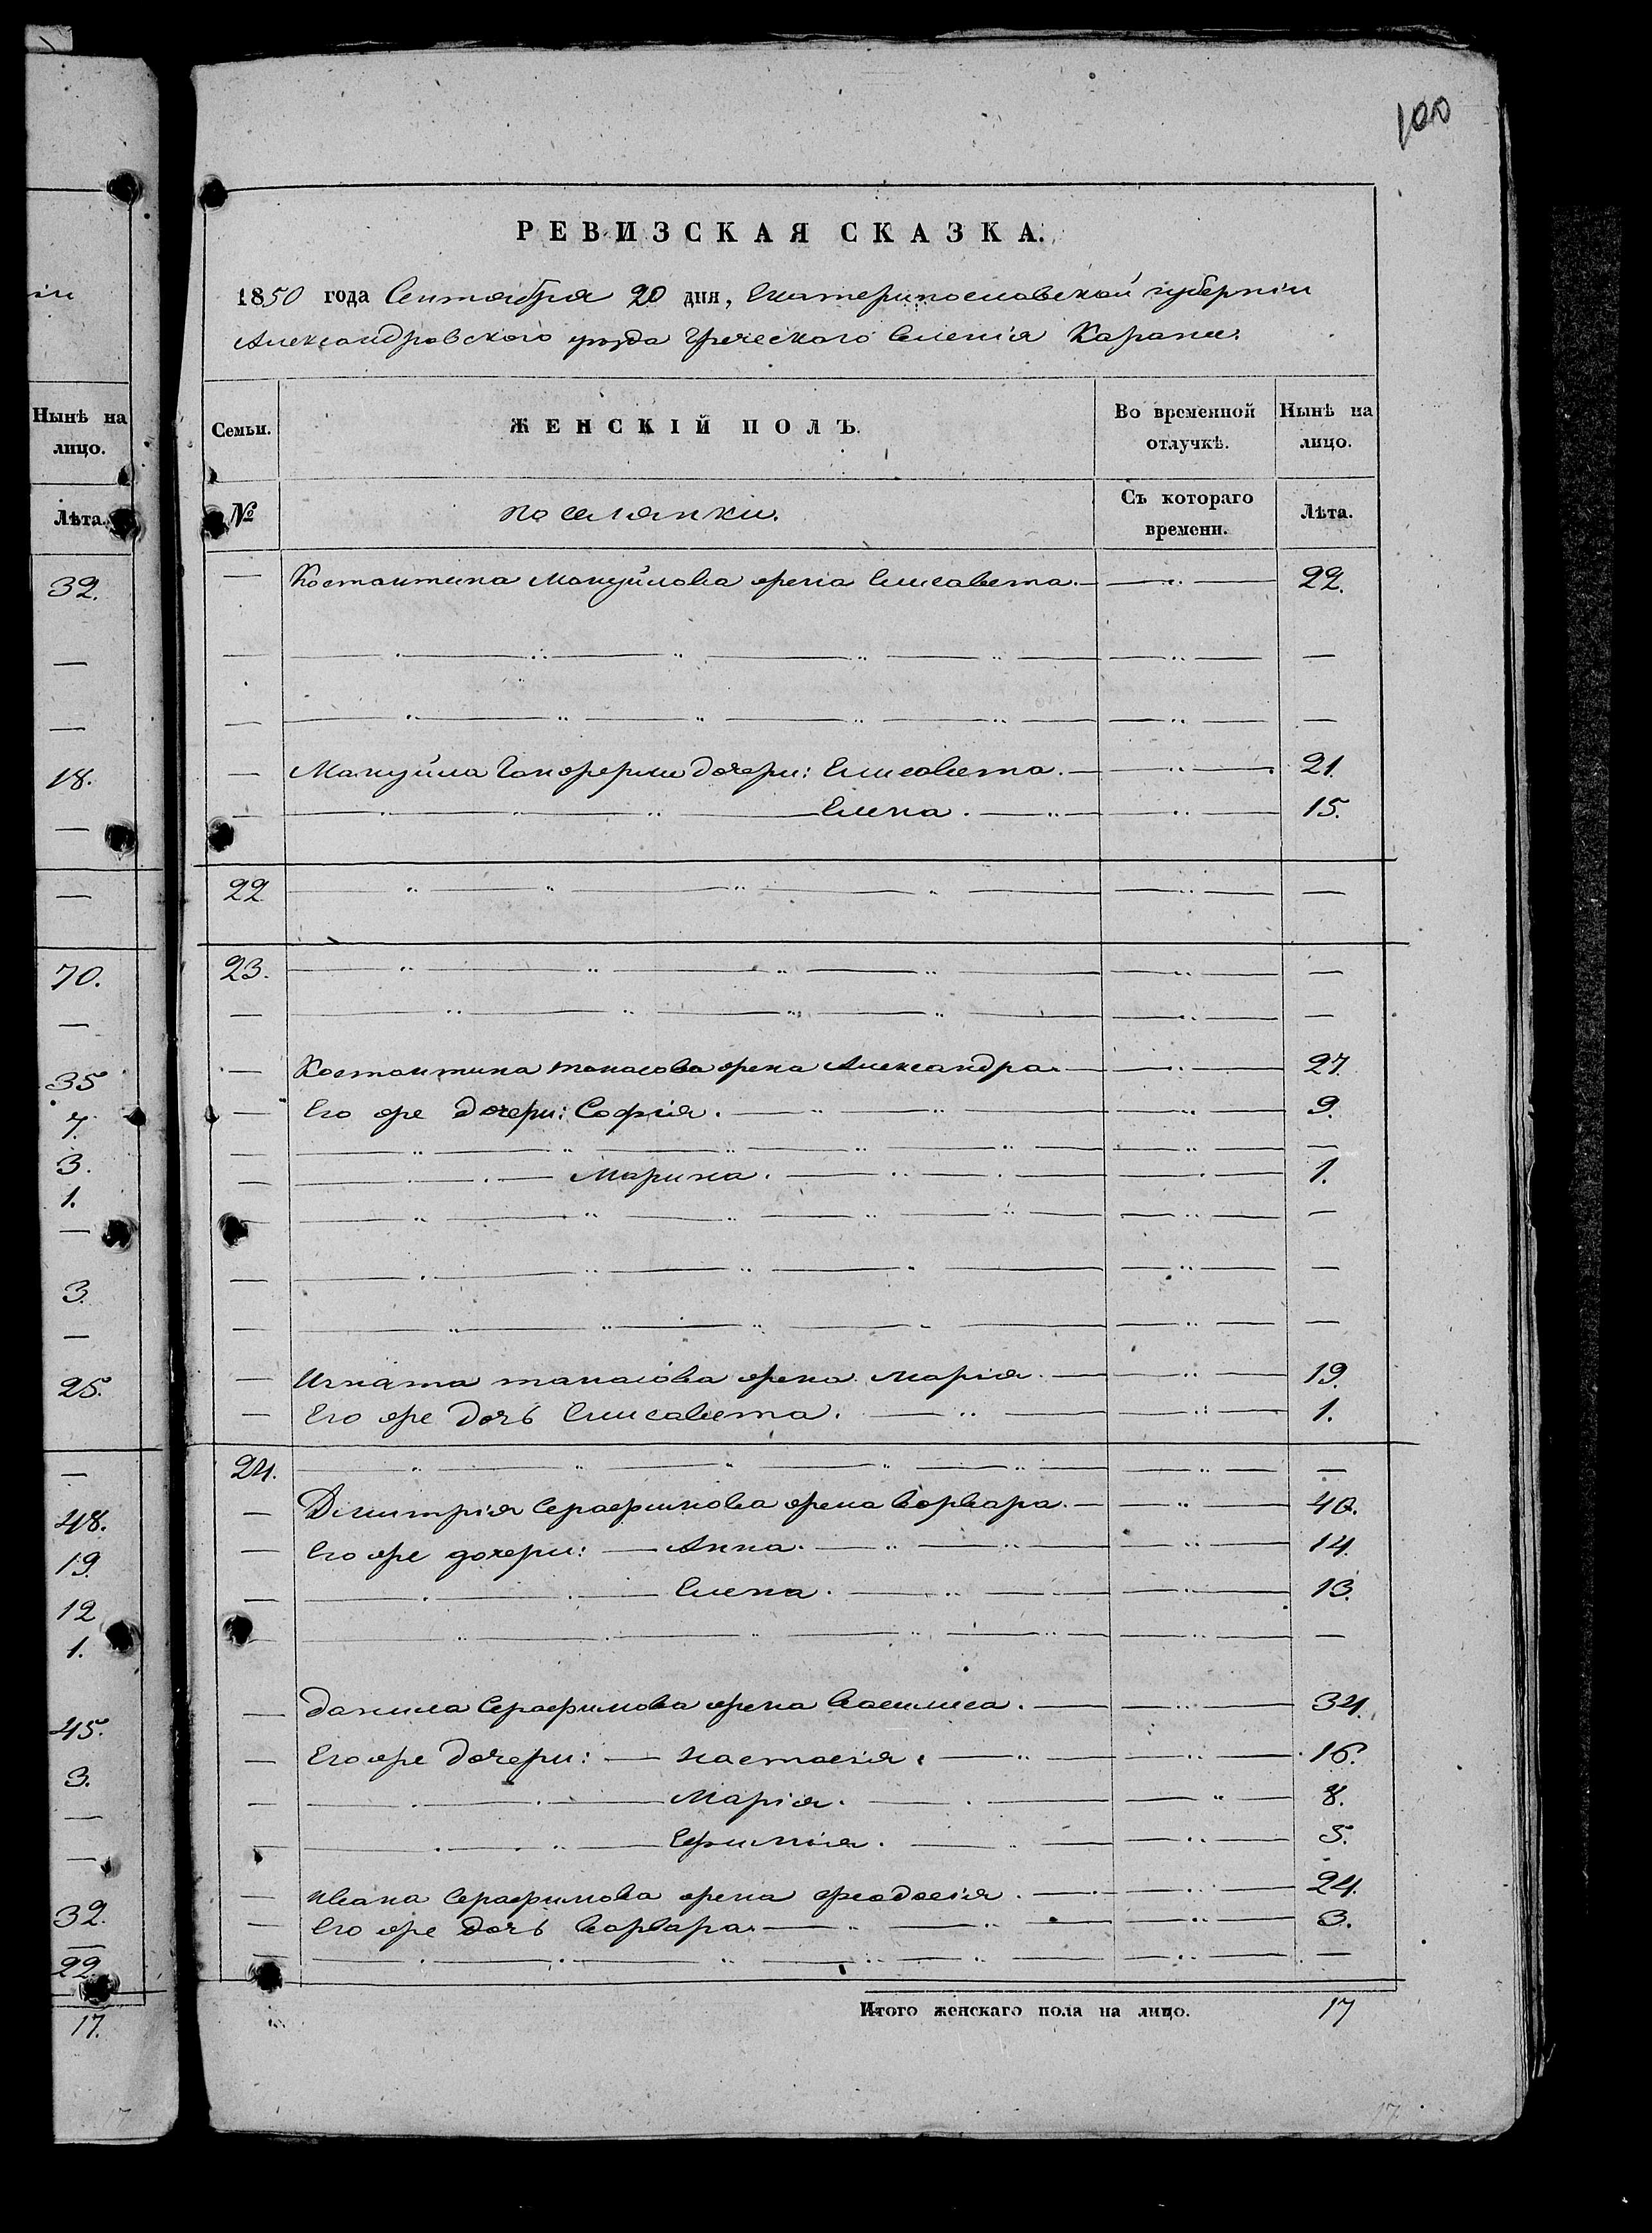 100
РЕВИЗСКАЯ СКАЗКА.
1850 года Сентября 20 дня, Екатеринославской губерніи
Александровского уезда Греческого Селенія Карани.
Семьи. ЖЕНСКІЙ ПОЛЪ. Во временной отлучкѣ. Нынѣ на лицо.
№ поселянки. Съ котораго времени. Лѣта.
— Костантина Мануйлова жена Елисавета. — 22.
— — —
— — —
— Мануйла дочери: Елисавета. — 21.
— Елена. — 15.
22 — —
23. — —
— — —
— Костантина танасова жена Александра. — 27.
— Его же дочери: Софія. — 9.
— — —
— Марина. — 1.
— — —
— — —
— — —
— Игната танасова жена Марія. — 19.
— Его же дочь Елисавета. — 1.
24. — —
— Дмитрія Серафимова жена Варвара. — 40.
— Его же дочери: — Анна. — 14.
— Елена. — 13.
— — —
— Данила Серафимова жена Василиса. — 34.
— Его же дочери: — Настасія. — 16.
— Марія. — 8.
— Ефимія. — 5.
— Ивана Серафимова жена Феодосія. — 24.
— Его же дочь Варвара. — 3.
— — —
Итого женскаго пола на лицо. 17
Нынѣ на
лицо.
Лѣта.
32.
—
—
18.
—
—
70.
—
35
7.
3.
1.
—
3.
—
25.
—
48.
19.
12
1.
45.
3.
—
—
32.
—
22.
17.